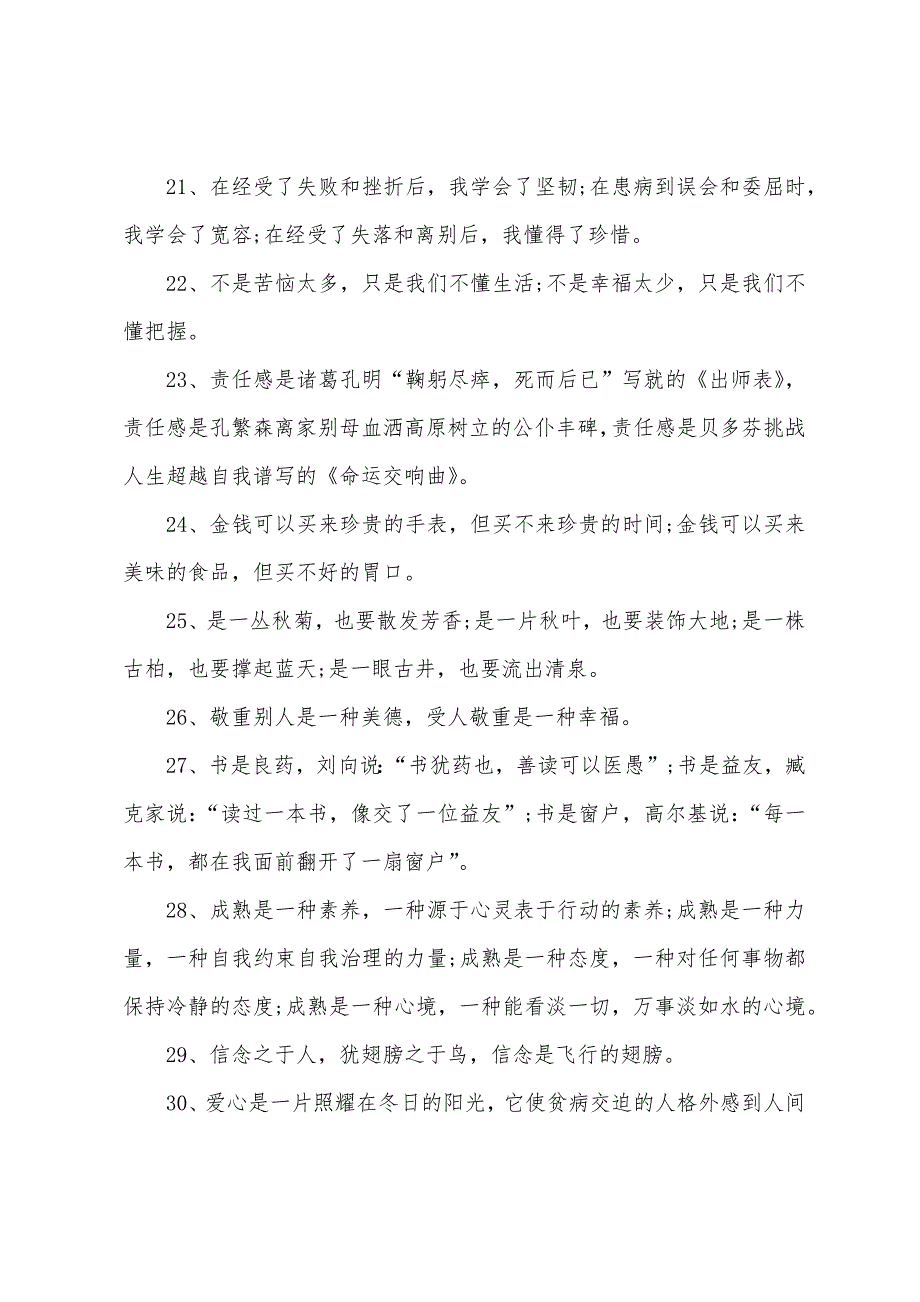 21、在经受了失败和挫折后，我学会了坚韧;在患病到误会和委屈时，
我学会了宽容;在经受了失落和离别后，我懂得了珍惜。
22、不是苦恼太多，只是我们不懂生活;不是幸福太少，只是我们不
懂把握。
23、责任感是诸葛孔明“鞠躬尽瘁，死而后已”写就的《出师表》，
责任感是孔繁森离家别母血洒高原树立的公仆丰碑，责任感是贝多芬挑战
人生超越自我谱写的《命运交响曲》。
24、金钱可以买来珍贵的手表，但买不来珍贵的时间;金钱可以买来
美味的食品，但买不好的胃口。
25、是一丛秋菊，也要散发芳香;是一片秋叶，也要装饰大地;是一株
古柏，也要撑起蓝天;是一眼古井，也要流出清泉。
26、敬重别人是一种美德，受人敬重是一种幸福。
27、书是良药，刘向说：“书犹药也，善读可以医愚”;书是益友，臧
克家说：“读过一本书，像交了一位益友”;书是窗户，高尔基说：“每一
本书，都在我面前翻开了一扇窗户”。
28、成熟是一种素养，一种源于心灵表于行动的素养;成熟是一种力
量，一种自我约束自我治理的力量;成熟是一种态度，一种对任何事物都
保持冷静的态度;成熟是一种心境，一种能看淡一切，万事淡如水的心境。
29、信念之于人，犹翅膀之于鸟，信念是飞行的翅膀。
30、爱心是一片照耀在冬日的阳光，它使贫病交迫的人格外感到人间